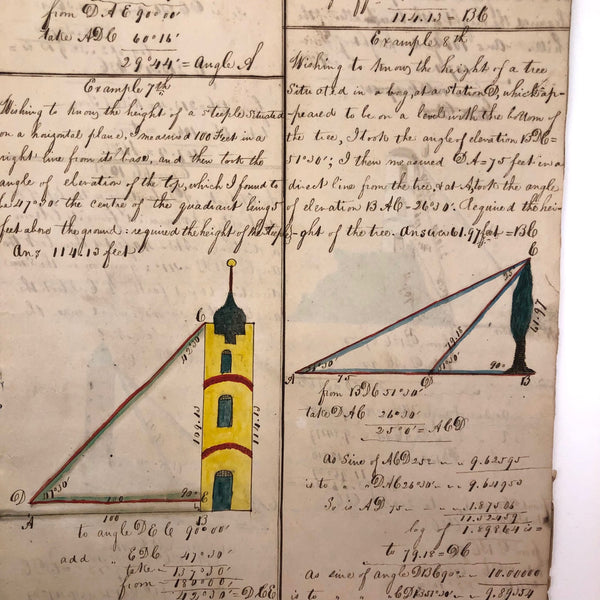 from DAE 90°00'
take ADC 60°16'
29°44' = Angle A
Example 7th
Wishing to know the height of a steeple situated
on a horizontal plane, I measured 100 Feet in a
right line from its base, and then took the
angle of elevation of the top, which I found to
be 47°30' the centre of the quadrant being 5
feet above the ground: required the height of the steeple
Ans 114.13 feet
C
42°30'
109.13
114.13
D
47°30'
100
90°
E
A
100
B
to angle DEC 90°00'
add " EDC 47°30'
take 137°30'
from 180°00'
42°30' = DCE
114.13 = BC
Example 8th
Wishing to know the height of a tree
Situated in a bog, at a station D, which ap-
-peared to be on a level with the bottom of
the tree, I took the angle of elevation BDC =
51°30'; I then measured DA = 75 feet in a
direct line from the tree, & at A, took the angle
of elevation BAC = 26°30'. Required the hei-
-ght of the tree. Answer 61.97 feet = BC
C
25°
79.18
61.97
A
26°30'
75
D
51°30'
90°
B
from BDC 51°30'
take DAC 26°30'
25°0' = ACD
As Sine of ACD 25° " " 9.62595
is to " " DAC 26°30' " 9.64953
So is AD 75 " " 1.87506
11.52459
log of 1.89864 is =
to 79.18 = DC
As sine of angle DBC 90° " 10.00000
is to " CDB 51°30' " 9.89354